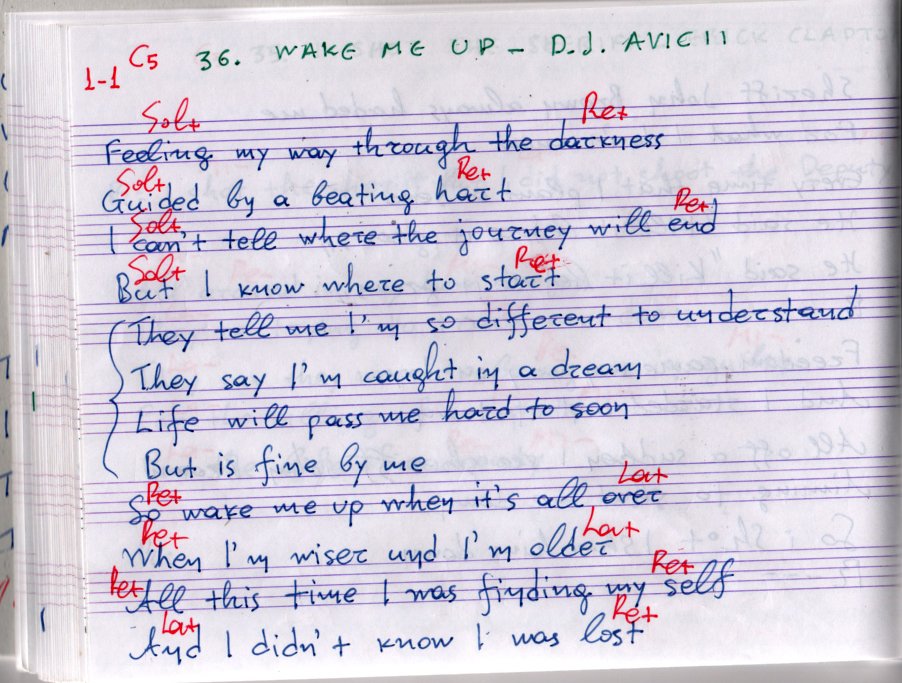 C5 36. WAKE ME UP - D.J AVICII
1-1
Sol+ Re+
Feeling my way through the darkness
Sol+ Re+
Guided by a beating hart
Sol+ Re+
I can't tell where the journey will end
Sol+ Re+
But I know where to start
They tell me I'm so different to understand
They say I'm caught in a dream
Life will pass me hard to soon
But is fine by me
Re+ La+
So wake me up when it's all over
Re+ La+
When I'm wiser und I'm older
Re+ Re+
All this time I was finding my self
La+ Re+
And I didn't know I was lost